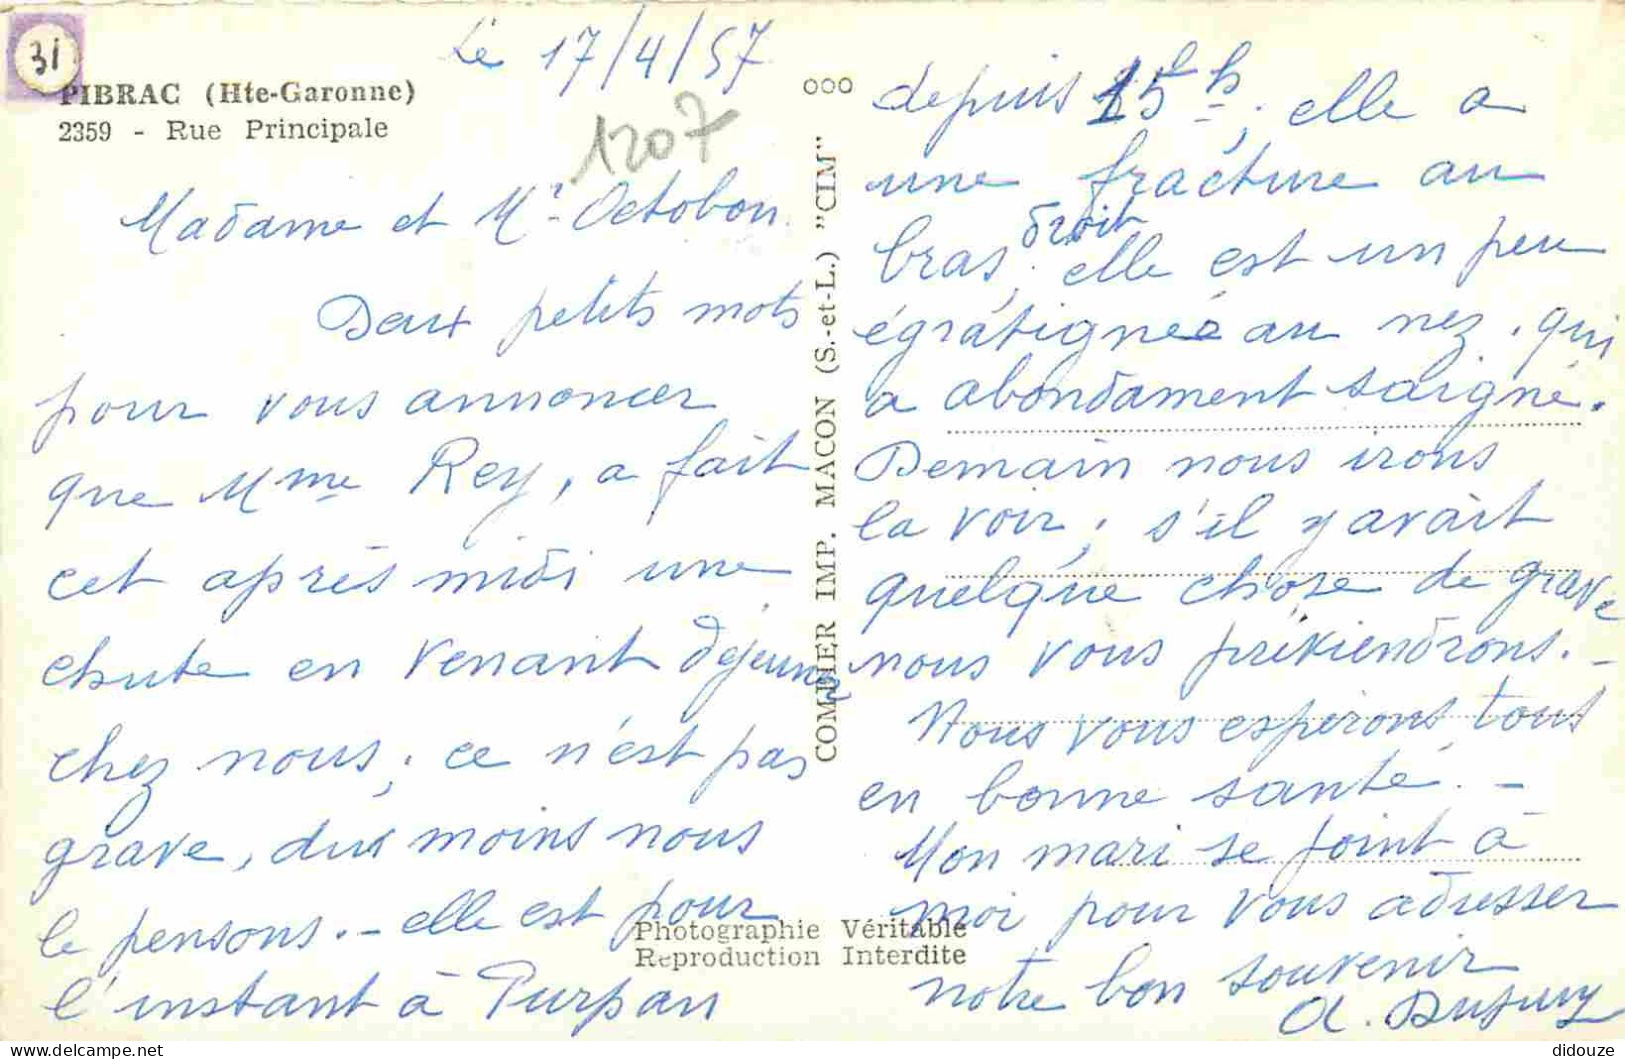 31
PIBRAC (Hte-Garonne)
2359 - Rue Principale
Le 17/4/57
1207
Madame et Mr Octobon
Deux petits mots
pour vous annoncer
que Mme Rey, a fait
cet après midi une
chute en venant déjeuner
chez nous, ce n'est pas
grave, du moins nous
le pensons. - elle est pour
l'instant à Purpan
COMBIER IMP. MACON (S.-et-L.) "CIM"
Photographie Véritable
Reproduction Interdite
depuis 15 h, elle a
une fracture au
bras droit, elle est un peu
égratignée au nez, qui
a abondament saigné.
Demain nous irons
la voir, s'il y avait
quelque chose de grave
nous vous préviendrons. -
Nous vous espérons tous
en bonne santé. -
Mon mari se joint à
moi pour vous adresser
notre bon souvenir
didouze